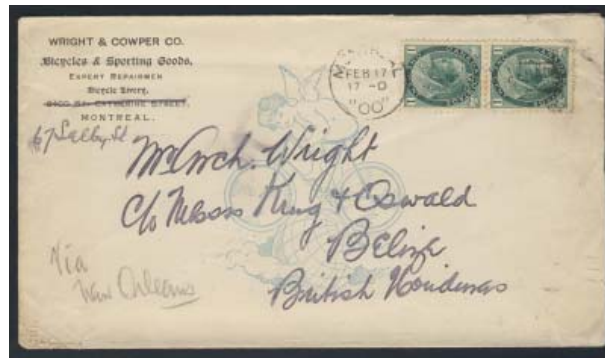 WRIGHT & COWPER CO.
Bicycles & Sporting Goods,
EXPERT REPAIRMEN
Bicycle Livery.
2400 ST. CATHERINE STREET,
MONTREAL.
67 Selby St
MONTREAL
FEB 17
17-0
"00"
Mr Arch. Wright
C/o Messrs King & Oswald
Belize
British Honduras
Via
New Orleans